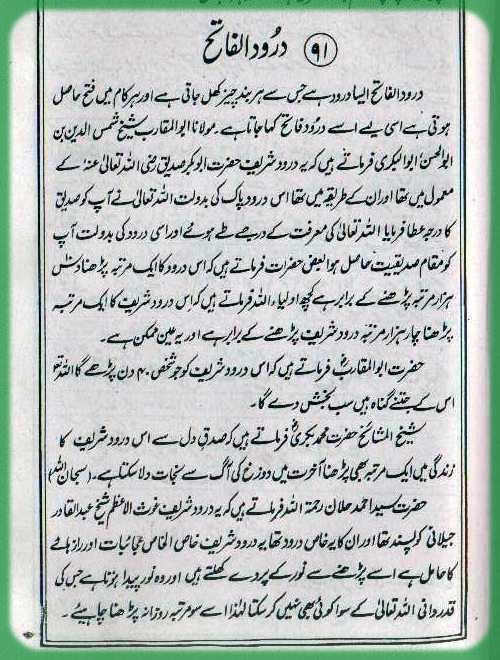 ۹۱ درُود الفاتح
درود الفاتح ایسا درود ہے جس سے ہر بند چیز کھل جاتی ہے اور ہر کام میں فتح حاصل
ہوتی ہے اسی لیے اسے درُود فاتح کہا جاتا ہے۔ مولانا ابو المقارب شیخ شمس الدین بن
ابو الحسن ابو البکری فرماتے ہیں کہ یہ درود شریف حضرت ابوبکر صدیق رضی اللہ تعالیٰ عنہ کے
معمول میں تھا اور ان کے طریقہ میں تھا اس درود پاک کی بدولت اللہ تعالیٰ نے آپ کو صدیق
کا درجہ عطا فرمایا اللہ تعالیٰ کی معرفت کے درجے طے ہوئے اور اسی درود کی بدولت آپ
کو مقام صدیقیت حاصل ہوا بعض حضرات فرماتے ہیں کہ اس درود کا ایک مرتبہ پڑھنا دس
ہزار مرتبہ پڑھنے کے برابر ہے کچھ اولیاء اللہ فرماتے ہیں کہ اس درود شریف کا ایک مرتبہ
پڑھنا چار ہزار مرتبہ درود شریف پڑھنے کے برابر ہے اور یہ عین ممکن ہے۔
حضرت ابو المقاربؒ فرماتے ہیں کہ اس درود شریف کو جو شخص ۴۰ دن پڑھے گا اللہ تعالیٰ
اس کے جتنے گناہ ہیں سب بخش دے گا۔
شیخ المشائخ حضرت محمد بکریؒ فرماتے ہیں کہ صدق دل سے اس درود شریف کا
زندگی میں ایک مرتبہ بھی پڑھنا آخرت میں دوزخ کی آگ سے نجات دلا سکتا ہے۔ (سبحان اللہ)
حضرت سید احمد حلان رحمۃ اللہ فرماتے ہیں کہ یہ درود شریف غوث الاعظم شیخ عبدالقادر
جیلانی کو پسند تھا اور ان کا یہ خاص درود تھا یہ درود شریف خاص الخاص عجائبات اور راز ہائے
کا حامل ہے اسے پڑھنے سے نور کے پردے کھلتے ہیں اور وہ نور پیدا ہوتا ہے جس کی
قدر دانی اللہ تعالیٰ کے سوا کوئی بھی نہیں کر سکتا لہٰذا اسے سو مرتبہ روزانہ پڑھنا چاہیئے۔